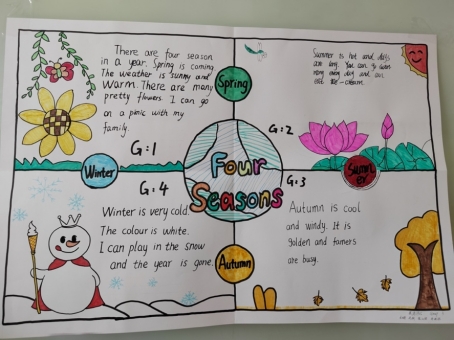 There are four season
in a year. Spring is coming
The weather is sunny and
warm. There are many
pretty flowers I can go
on a picnic with my
family.
G:1
Spring
Summer is hot and days
are long. You can go swim
every day and can
eat ice-cream.
G:2
Four
Seasons
Winter
Summ
er
G:4
Winter is very cold.
The colour is white.
I can play in the snow
and the year is gone.
G:3
Autumn is cool
and windy. It is
golden and famers
are busy.
Autumn